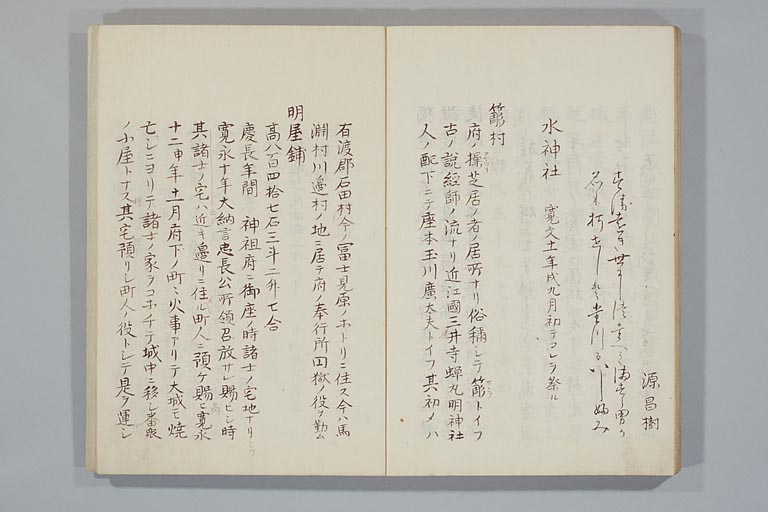 源昌樹
水神社　寛文十二年戌九月初テコレヲ祭ル
簓村
府ノ操芝居ノ者ノ居所ナリ俗稱シテ簓トイフ
古ノ説經師ノ流ナリ近江國三井寺蝉丸明神社
人ノ配下ニテ座本玉川廣太夫トイフ其初メハ
有渡郡石田村今ノ冨士見原ノホトリニ住ス今ハ馬
渕村川邊村ノ地ニ居テ府ノ奉行所囚獄ノ役ヲ勤ム
明屋鋪
高八百四拾七石三斗二升七合
慶長年間　神祖府ニ御座ノ時諸士ノ宅地ナリシ
寛永十年大納言忠長公所領召放サレ賜ヒシ時
其諸士ノ宅ハ近キ邊リニ住ル町人ニ預ケ賜ヒ寛永
十二申年十一月府下ノ町ニ火事アリテ大城モ焼
亡シニヨリテ諸士ノ家ヲコボチテ城中ニ移シ番衆
ノ小屋トナス其宅預リシ町人役トシテ是ヲ運シ